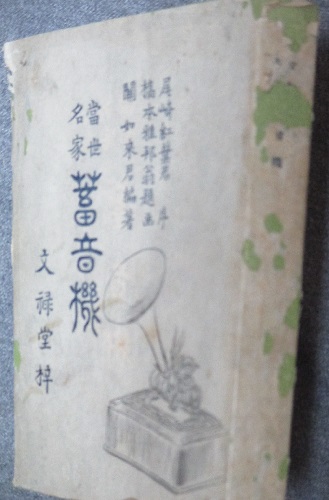 尾崎紅葉君 序
橋本雅邦翁題画
関如来君編著
當世
名家
蓄音機
文禄堂梓